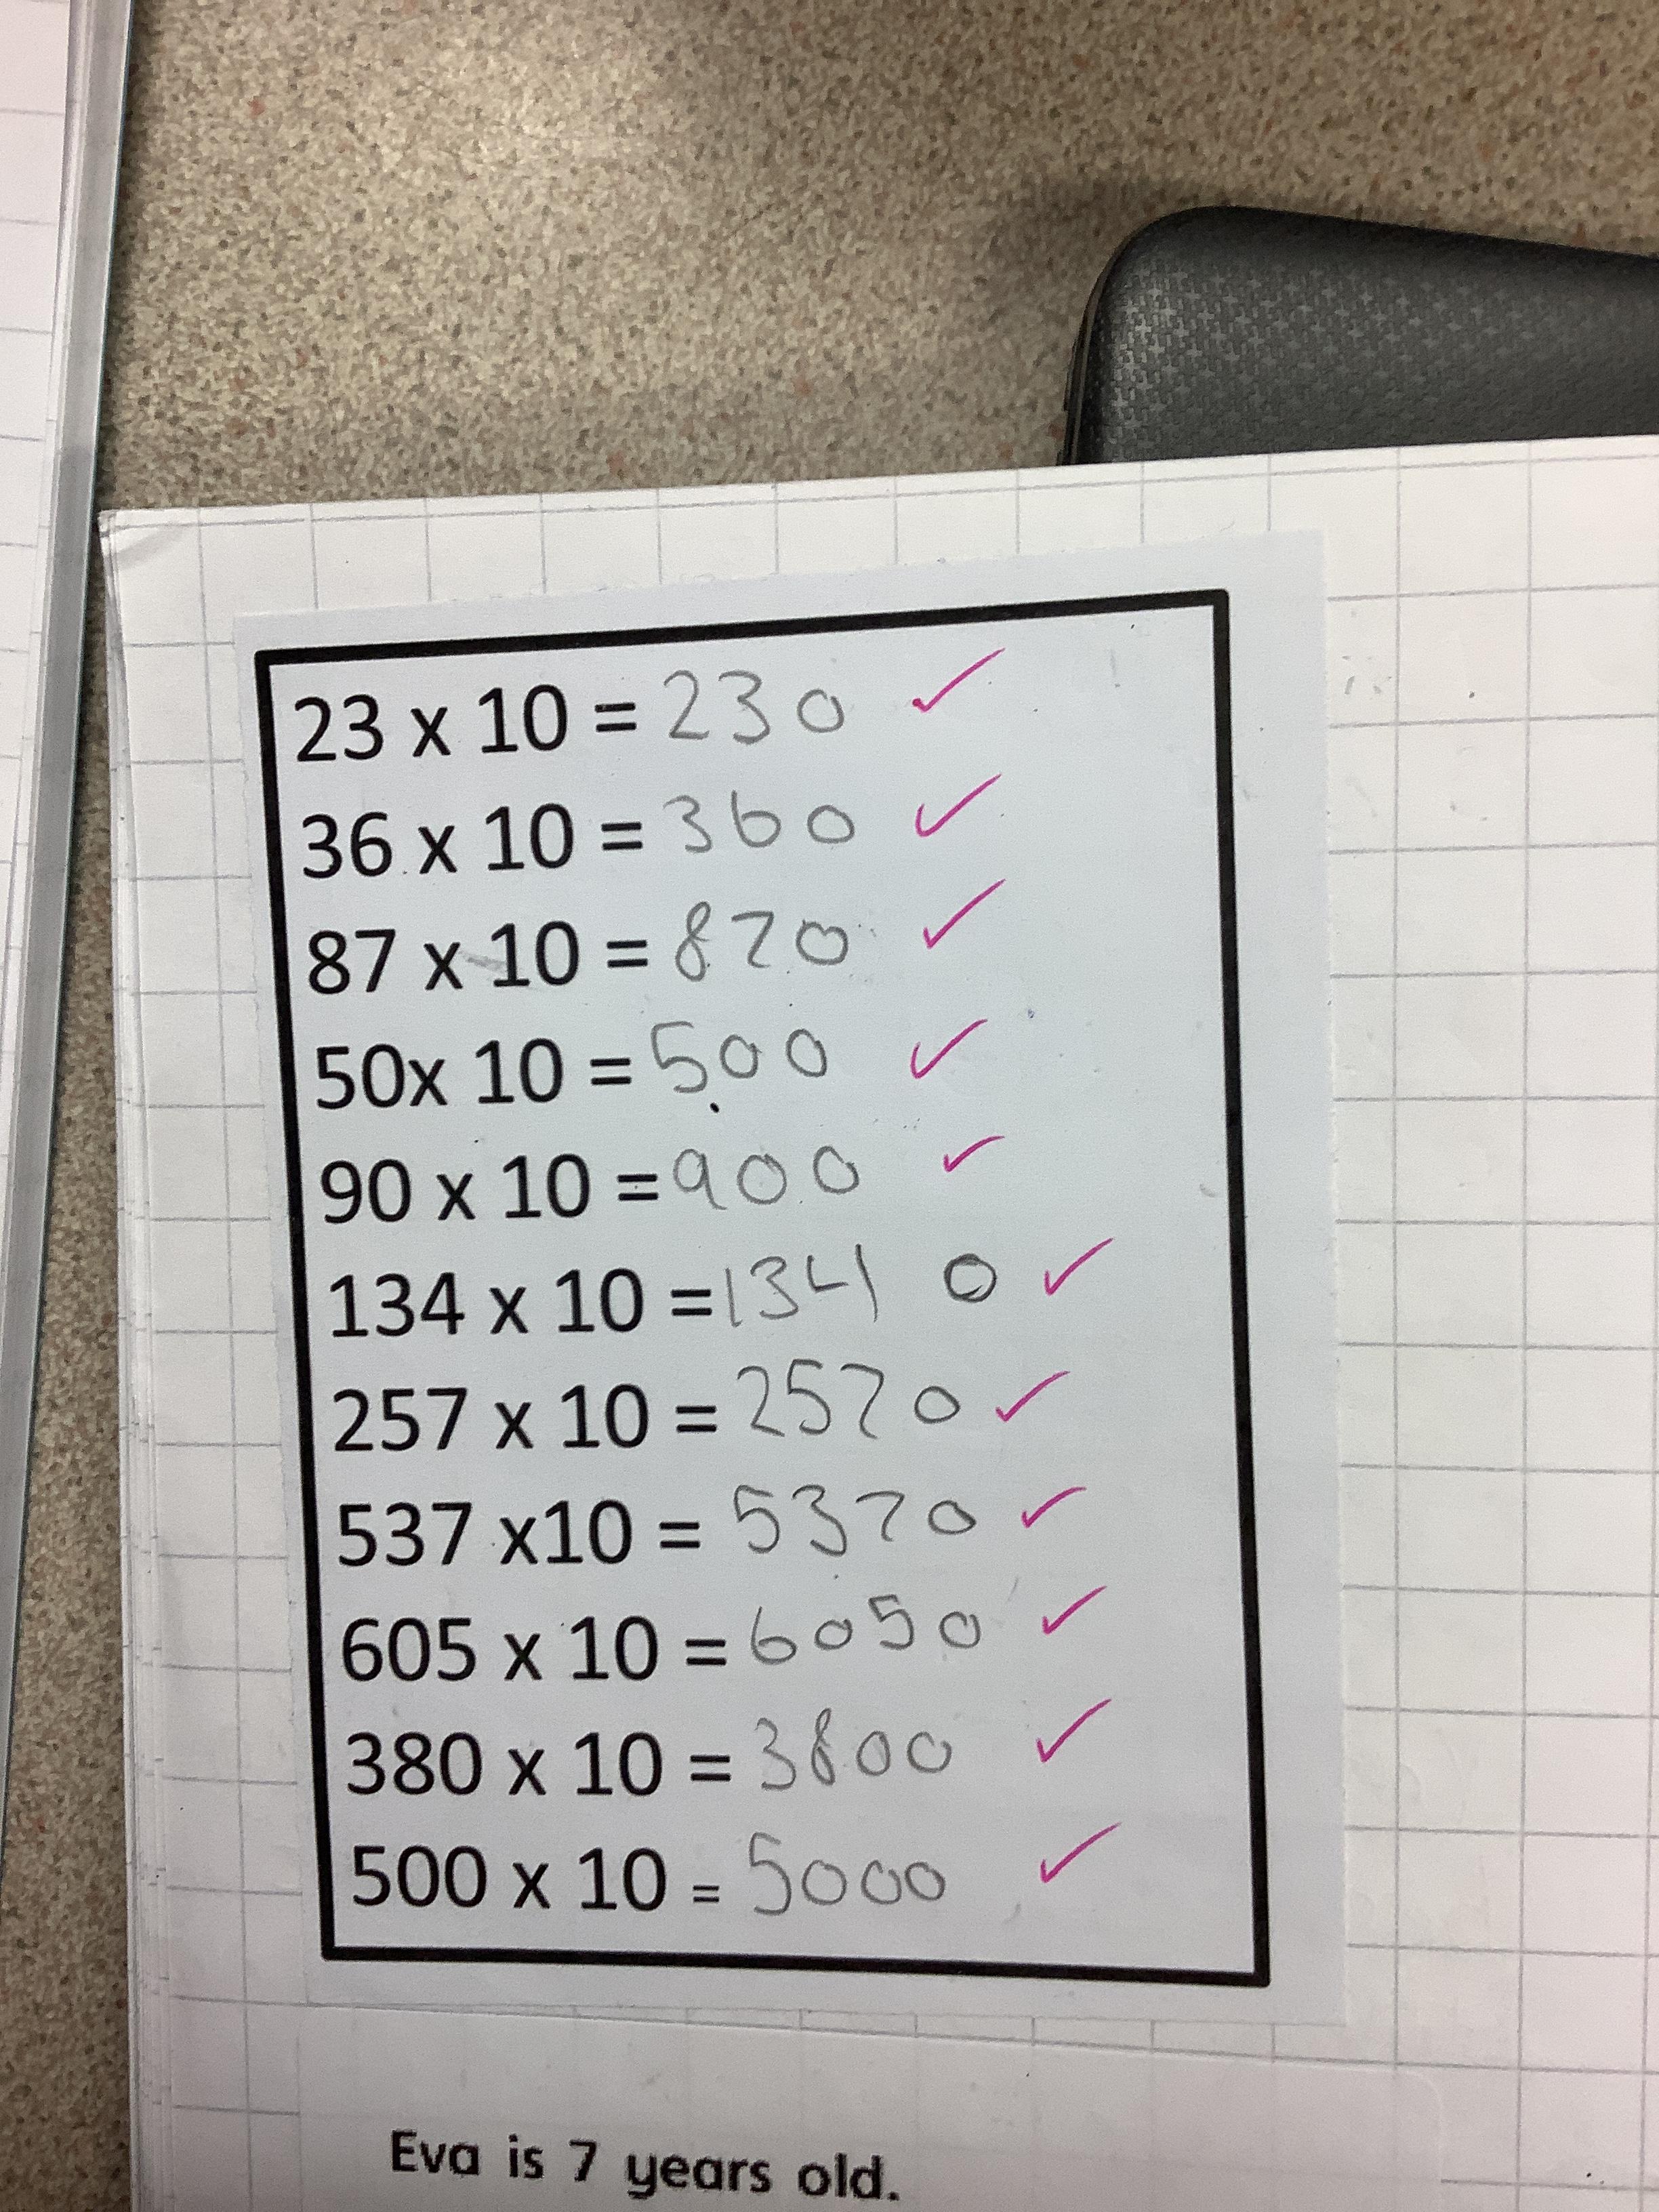 23 x 10 = 230 ✓
36 x 10 = 360 ✓
87 x 10 = 870 ✓
50x 10 = 500 ✓
90 x 10 = 900 ✓
134 x 10 = 1340 ✓
257 x 10 = 2570 ✓
537 x10 = 5370 ✓
605 x 10 = 6050 ✓
380 x 10 = 3800 ✓
500 x 10 = 5000 ✓
Eva is 7 years old.